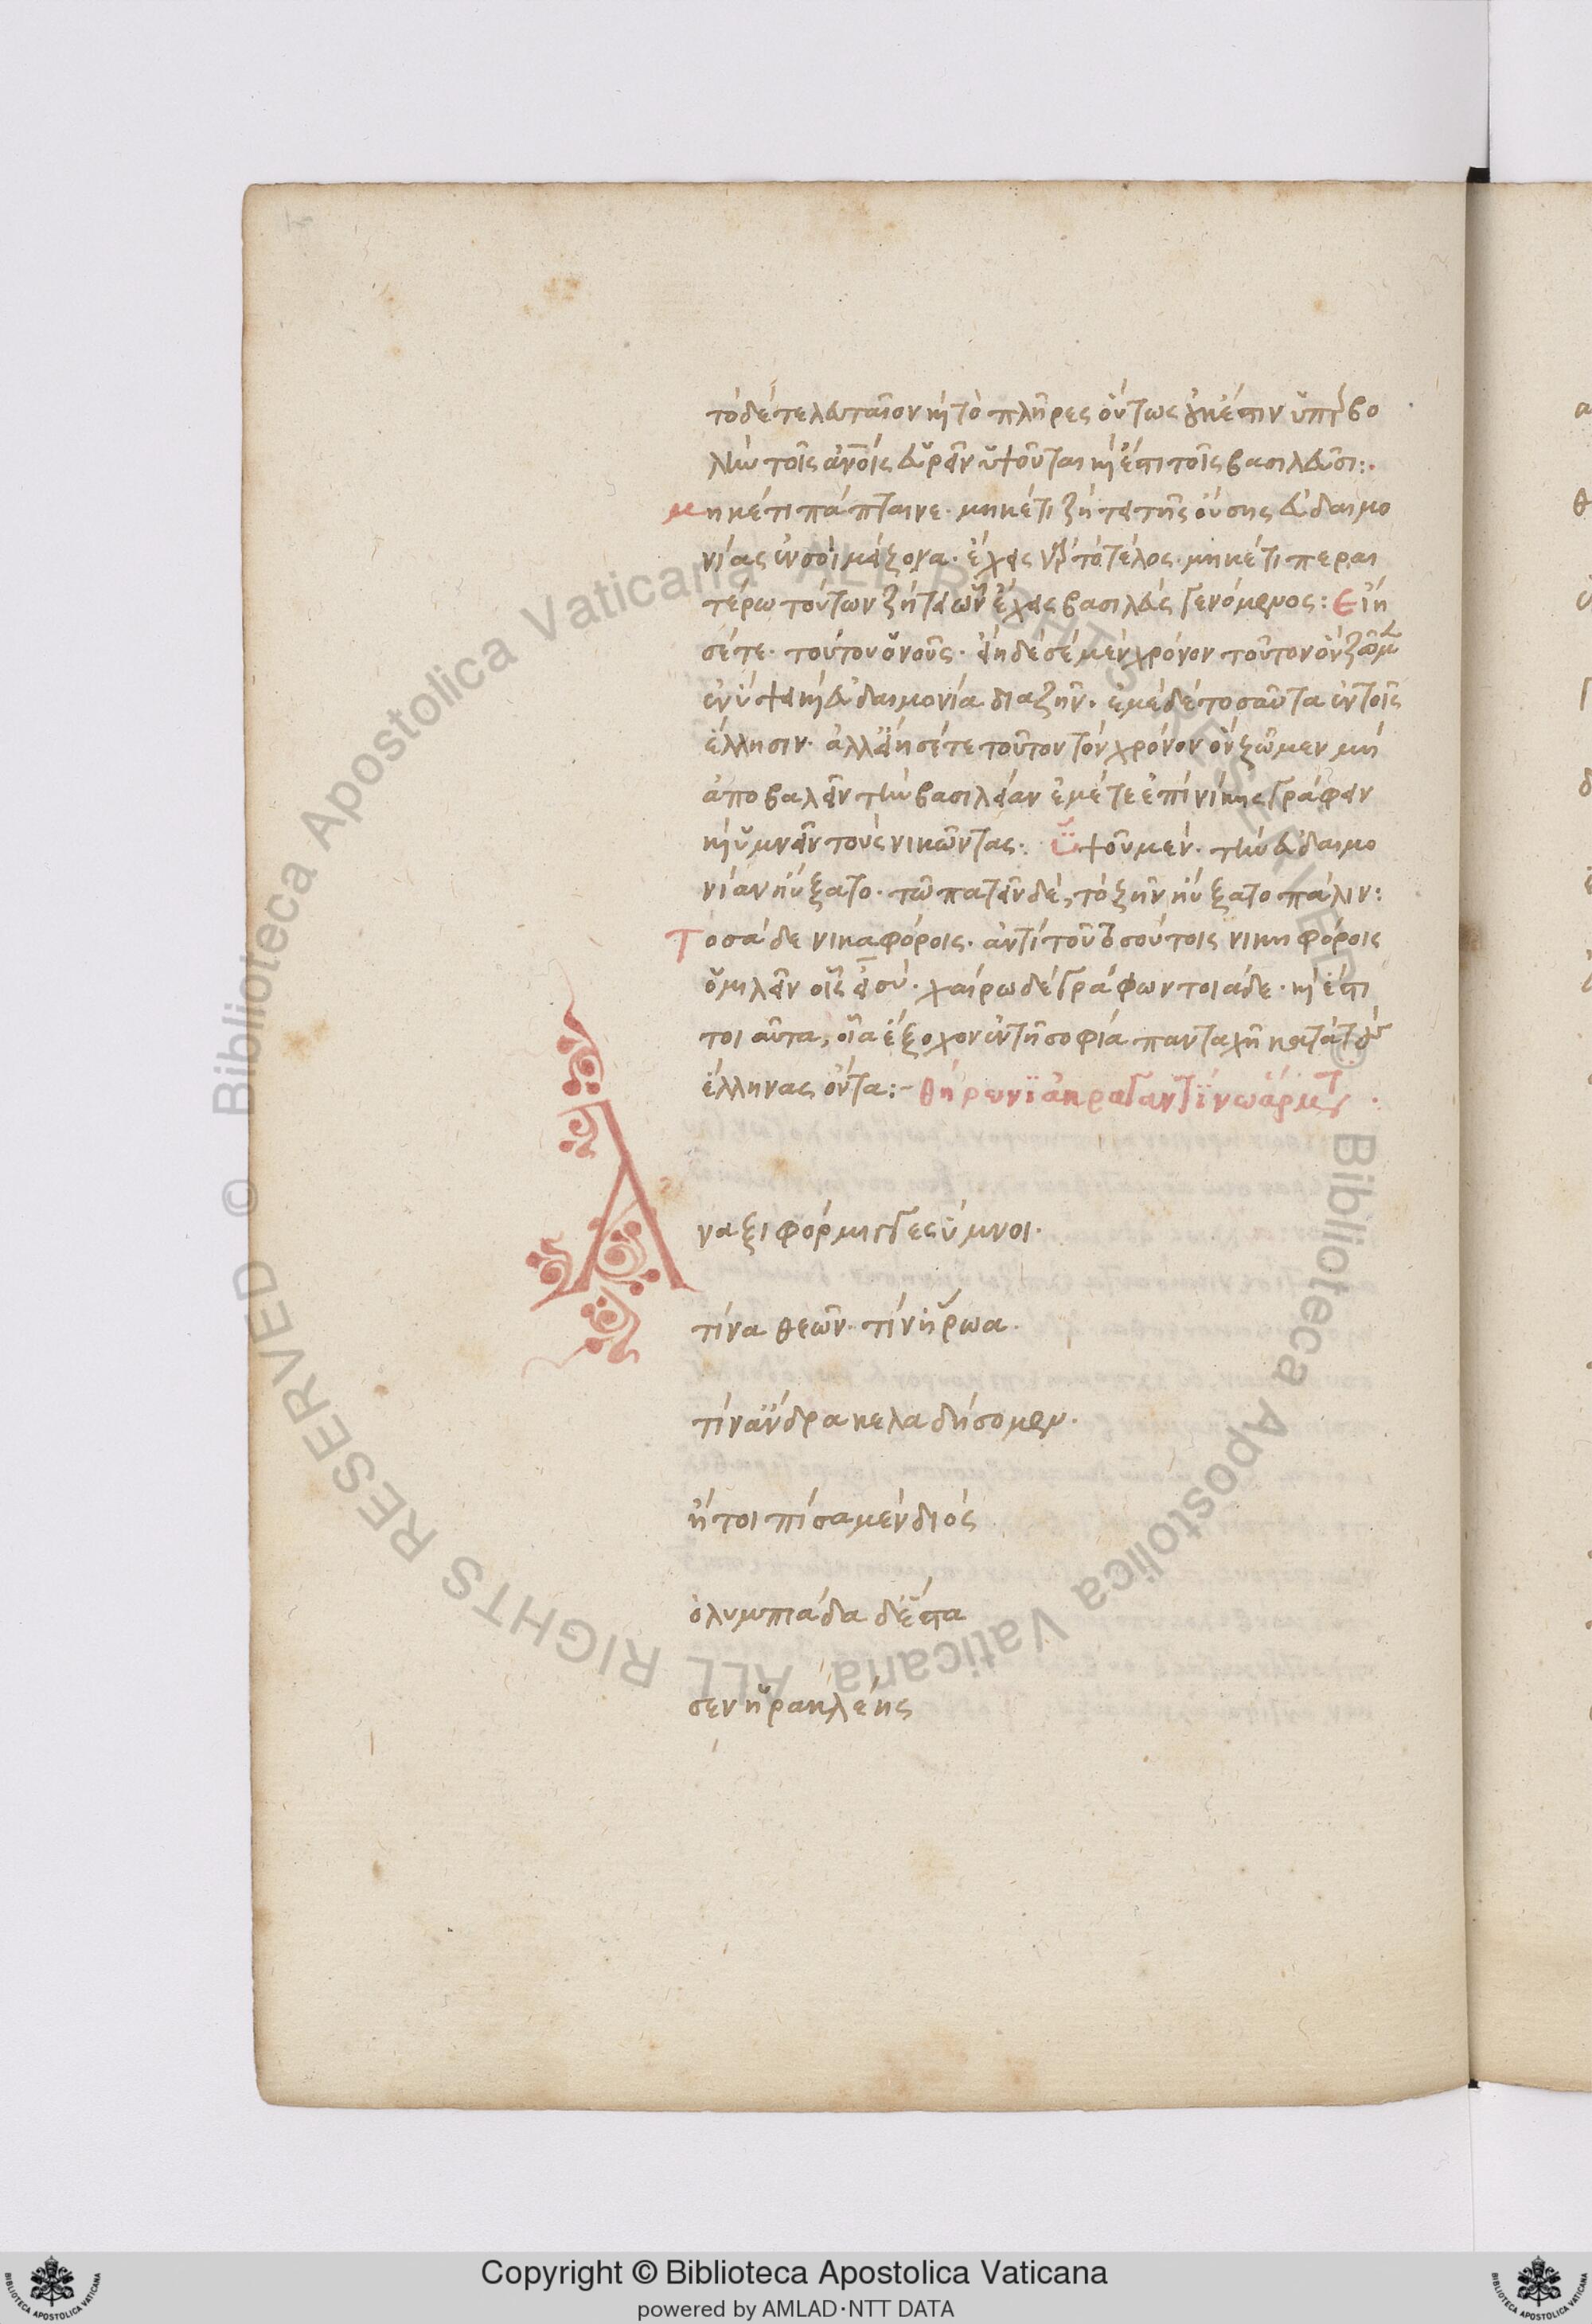 τὸ δὲ τελευταῖον καὶ τὸ πλῆρες οὕτως οὐκ ἔστιν ὑπερβο
λὴν τοῖς ἀνοις εὑρεῖν ὑψοῦνται καὶ ἐπὶ τοῖς βασιλεῦσι:.
μηκέτι πάπταινε· μηκέτι ζήτει τῆς οὔσης εὐδαιμο
νίας ἐν σοὶ μείζονα· ἔχεις γὰρ τὸ τέλος· μηκέτι περαι
τέρω τούτων ζήτει ὧν ἔχεις βασιλεὺς γενόμενος: Εἴη
σέ τε· τούτου ὁ νοῦς· εἴη δὲ σὲ μὲν χρόνον τοῦτον ὃν ζῶμεν
ἐν ὕψει καὶ εὐδαιμονία διαζῆν· ἐμὲ δὲ τοσαῦτα ἐν τοῖς
ἕλλησιν· ἀλλ' εἴη σέ τε τοῦτον τὸν χρόνον ὃν ζῶμεν μὴ
ἀποβαλεῖν τὴν βασιλείαν ἐμέ τε ἐπινίκης γράφειν
καὶ ὑμνεῖν τοὺς νικῶντας· ὑψοῦ μὲν· τὴν εὐδαιμο
νίαν ηὔξατο· τῶ πατεῖν δὲ, τὸ ζῆν ηὔξατο πάλιν:
Τοσάδε νικαφόροις· ἀντὶ τοῦ τοσούτοις νικηφόροις
ὁμιλεῖν οἷς εἶ σύ· χαίρω δὲ γράφων τοιάδε· καὶ ἐπὶ
τοιαῦτα, οἷα ἔξοχον ἐν τῆ σοφία πανταχῆ κατὰ τοὺς
ἕλληνας ὄντα:- θήρωνι ἀκραγαντίνω ἅρματι
Αναξιφόρμιγγες ὕμνοι·
τίνα θεῶν· τίν' ἥρωα·
τίνα ἄνδρα κελαδήσομεν·
ἤτοι πίσα μὲν διός
ὀλυμπιάδα δ' ἔστα
σεν ἡρακλέης
Copyright © Biblioteca Apostolica Vaticana
powered by AMLAD·NTT DATA